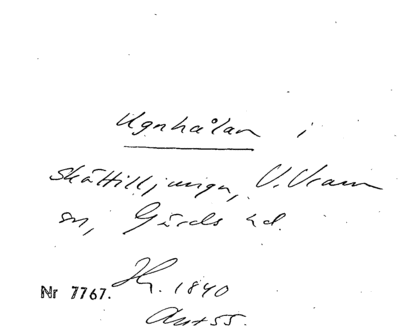 Ugnhålan i
Skättilljunga, V. Vram
sn, Gärds hd.
Nr 7767. 1840